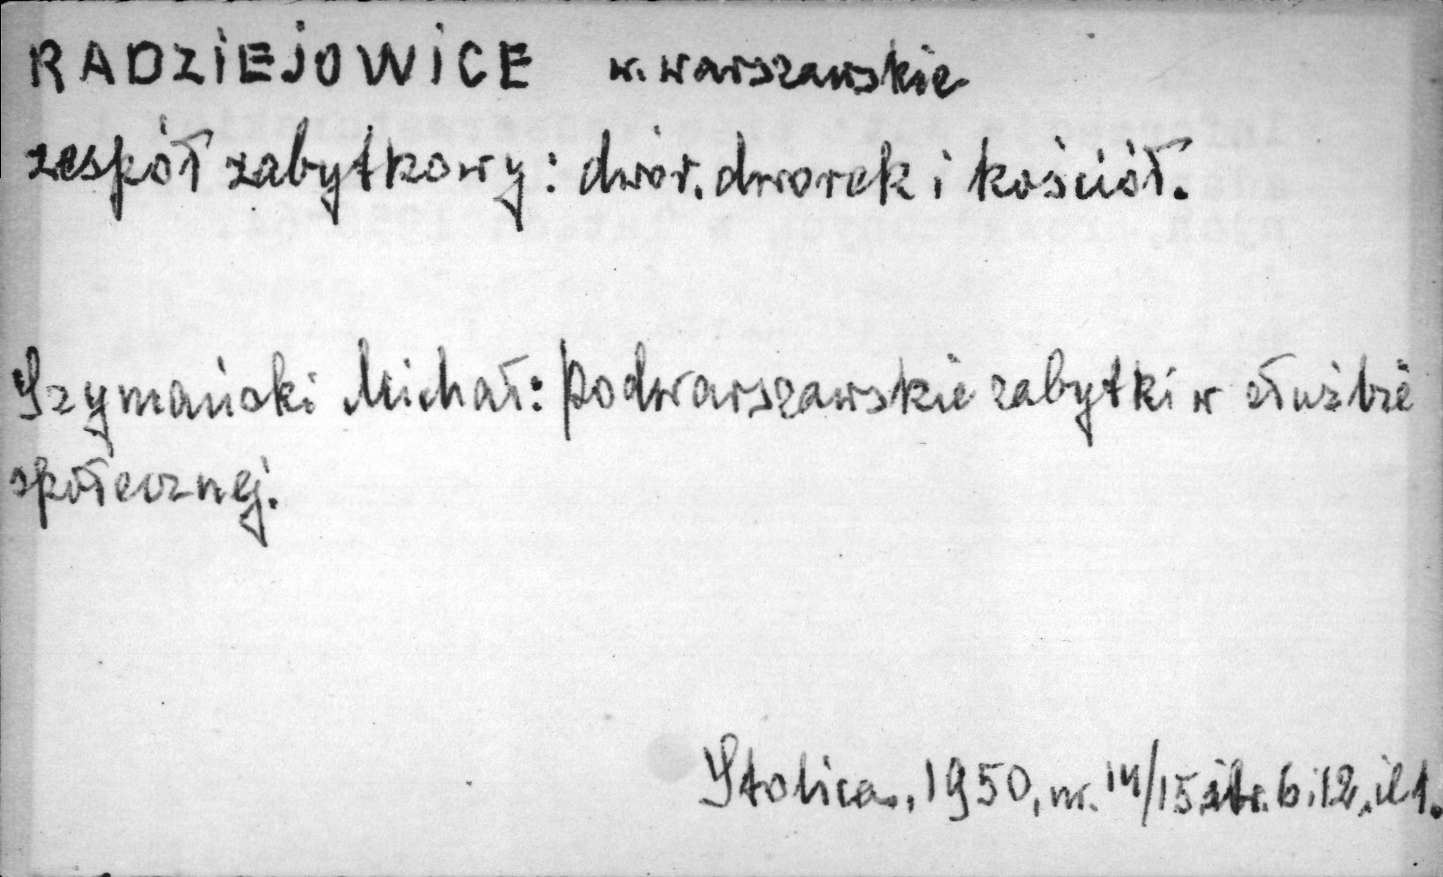 RADZIEJOWICE w. warszawskie
zespół zabytkowy: dwór, dworek i kościół.
Szymański Michał: Podwarszawskie zabytki w służbie
społecznej.
Stolica, 1950, nr. 14/15 str. 6 i 12, il 1.